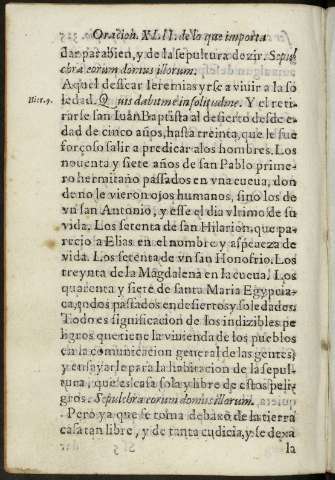 Oracion. XLII. de lo que importa
dar parabien, y de la sepultura dezir. Sepul
chra eorum domus illorum.
Aquel dessear Ieremias yrse a viuir a la so
Hier. 9.
ledad. Quis dabit me in solitudine. Y el reti
rarse san Iuã Baptista al desierto desde e-
dad de cinco años, hasta treinta, que le fue
forçoso salir a predicar a los hombres. Los
nouenta y siete años de san Pablo prime-
ro hermitaño passados en vna cueua, don
de no le vieron ojos humanos, sino los de
vn san Antonio, y esse el dia vltimo de su
vida. Los setenta de san Hilarion, que pa-
recio a Elias en el nombre y aspereza de
vida. Los setenta de vn san Honofrio. Los
treynta de la Magdalena en la cueua. Los
quarenta y siete de santa Maria Egypcia-
ca, todos passados en desiertos y soledades.
Todo es significacion de los indizibles pe
ligros que tiene la viuienda de los pueblos
en la comunicacion general de las gentes;
y ensayarse para la habitacion de la sepul-
tura, que es casa sola y libre de estos peli-
gros. Sepulchra eorum domus illorum.
Pero ya que se toma debaxo de la tierra
casa tan libre, y de tanta cudicia, y se dexa
la